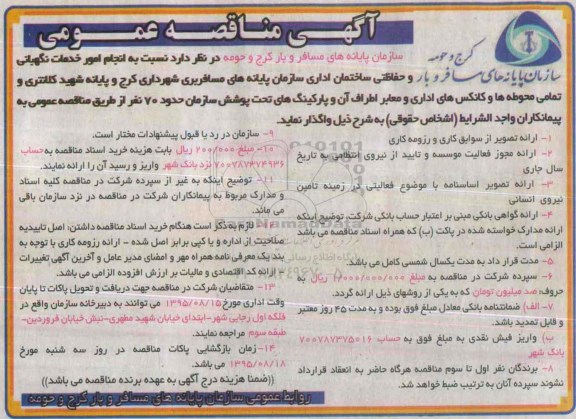 آگهی مناقصه عمومی
کرج و حومه
سازمان پایانه های مسافر و بار
سازمان پایانه های مسافر و بار کرج و حومه در نظر دارد نسبت به انجام امور خدمات نگهبانی
و حفاظتی ساختمان اداری سازمان پایانه های مسافربری شهرداری کرج و پایانه شهید کلانتری و
تمامی محوطه ها و کانکس های اداری و معابر اطراف آن و پارکینگ های تحت پوشش سازمان حدود ۷۰ نفر از طریق مناقصه عمومی به
پیمانکاران واجد الشرایط (اشخاص حقوقی) به شرح ذیل واگذار نماید.
۱- ارائه تصویر از سوابق کاری و رزومه کاری
۲- ارائه مجوز فعالیت موسسه و تایید از نیروی انتظامی به تاریخ
سال جاری
۳- ارائه تصویر اساسنامه با موضوع فعالیتی در زمینه تامین
نیروی انسانی
۴- ارائه گواهی بانکی مبنی بر اعتبار حساب بانکی شرکت، توضیح اینکه
ارائه مدارک خواسته شده در پاکت (ب) که همراه اسناد مناقصه می باشد
الزامی است.
۵- مدت قرار داد به مدت یکسال شمسی کامل می باشد.
۶- سپرده شرکت در مناقصه به مبلغ ۱/۰۰۰/۰۰۰/۰۰۰ ریال به
حروف صد میلیون تومان که به یکی از روشهای ذیل ارائه گردد.
۷- الف) ضمانتنامه بانکی معادل مبلغ فوق بوده و به مدت ۴۵ روز معتبر
و قابل تمدید باشد.
ب) واریز فیش نقدی به مبلغ فوق به حساب ۷۰۰۷۸۷۳۷۵۰۱۶
بانک شهر
۸- برندگان نفر اول تا سوم مناقصه هرگاه حاضر به انعقاد قرارداد
نشوند سپرده آنان به ترتیب ضبط خواهد شد.
۹- سازمان در رد یا قبول پیشنهادات مختار است.
۱۰- مبلغ ۲۰۰/۰۰۰ ریال بابت هزینه خرید اسناد مناقصه به حساب
۷۰۰۷۸۷۳۷۴۹۳۶ نزد بانک شهر واریز و رسید آن را ارائه نمایند.
۱۱- توضیح اینکه به غیر از سپرده شرکت در مناقصه کلیه اسناد
و مدارک مربوط به پیمانکاران شرکت در مناقصه نزد سازمان باقی
می ماند.
۱۲- لازم به ذکر است هنگام خرید اسناد مناقصه داشتن: اصل تاییدیه
صلاحیت از اداره و یا کپی برابر اصل شده - ارائه رزومه کاری با توجه به
بند یک معرفی نامه همراه مهر و امضای مدیر عامل و آخرین آگهی تغییرات
- ارائه کد اقتصادی و مالیات بر ارزش افزوده الزامی می باشد.
۱۳- متقاضیان شرکت در مناقصه جهت دریافت و تحویل پاکات تا پایان
وقت اداری مورخ ۱۳۹۵/۰۸/۱۵ می توانند به دبیرخانه سازمان واقع در
فلکه اول رجایی شهر-ابتدای خیابان شهید مطهری-نبش خیابان فروردین-
طبقه سوم مراجعه نمایند.
۱۴- زمان بازگشایی پاکات مناقصه در روز سه شنبه مورخ
۱۳۹۵/۰۸/۱۸ می باشد.
((ضمنا هزینه درج آگهی به عهده برنده مناقصه می باشد))
روابط عمومی سازمان پایانه های مسافر و بار کرج و حومه